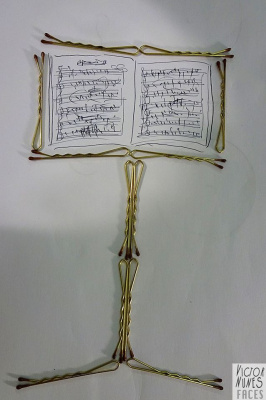 VICTOR
NUNES
FACES